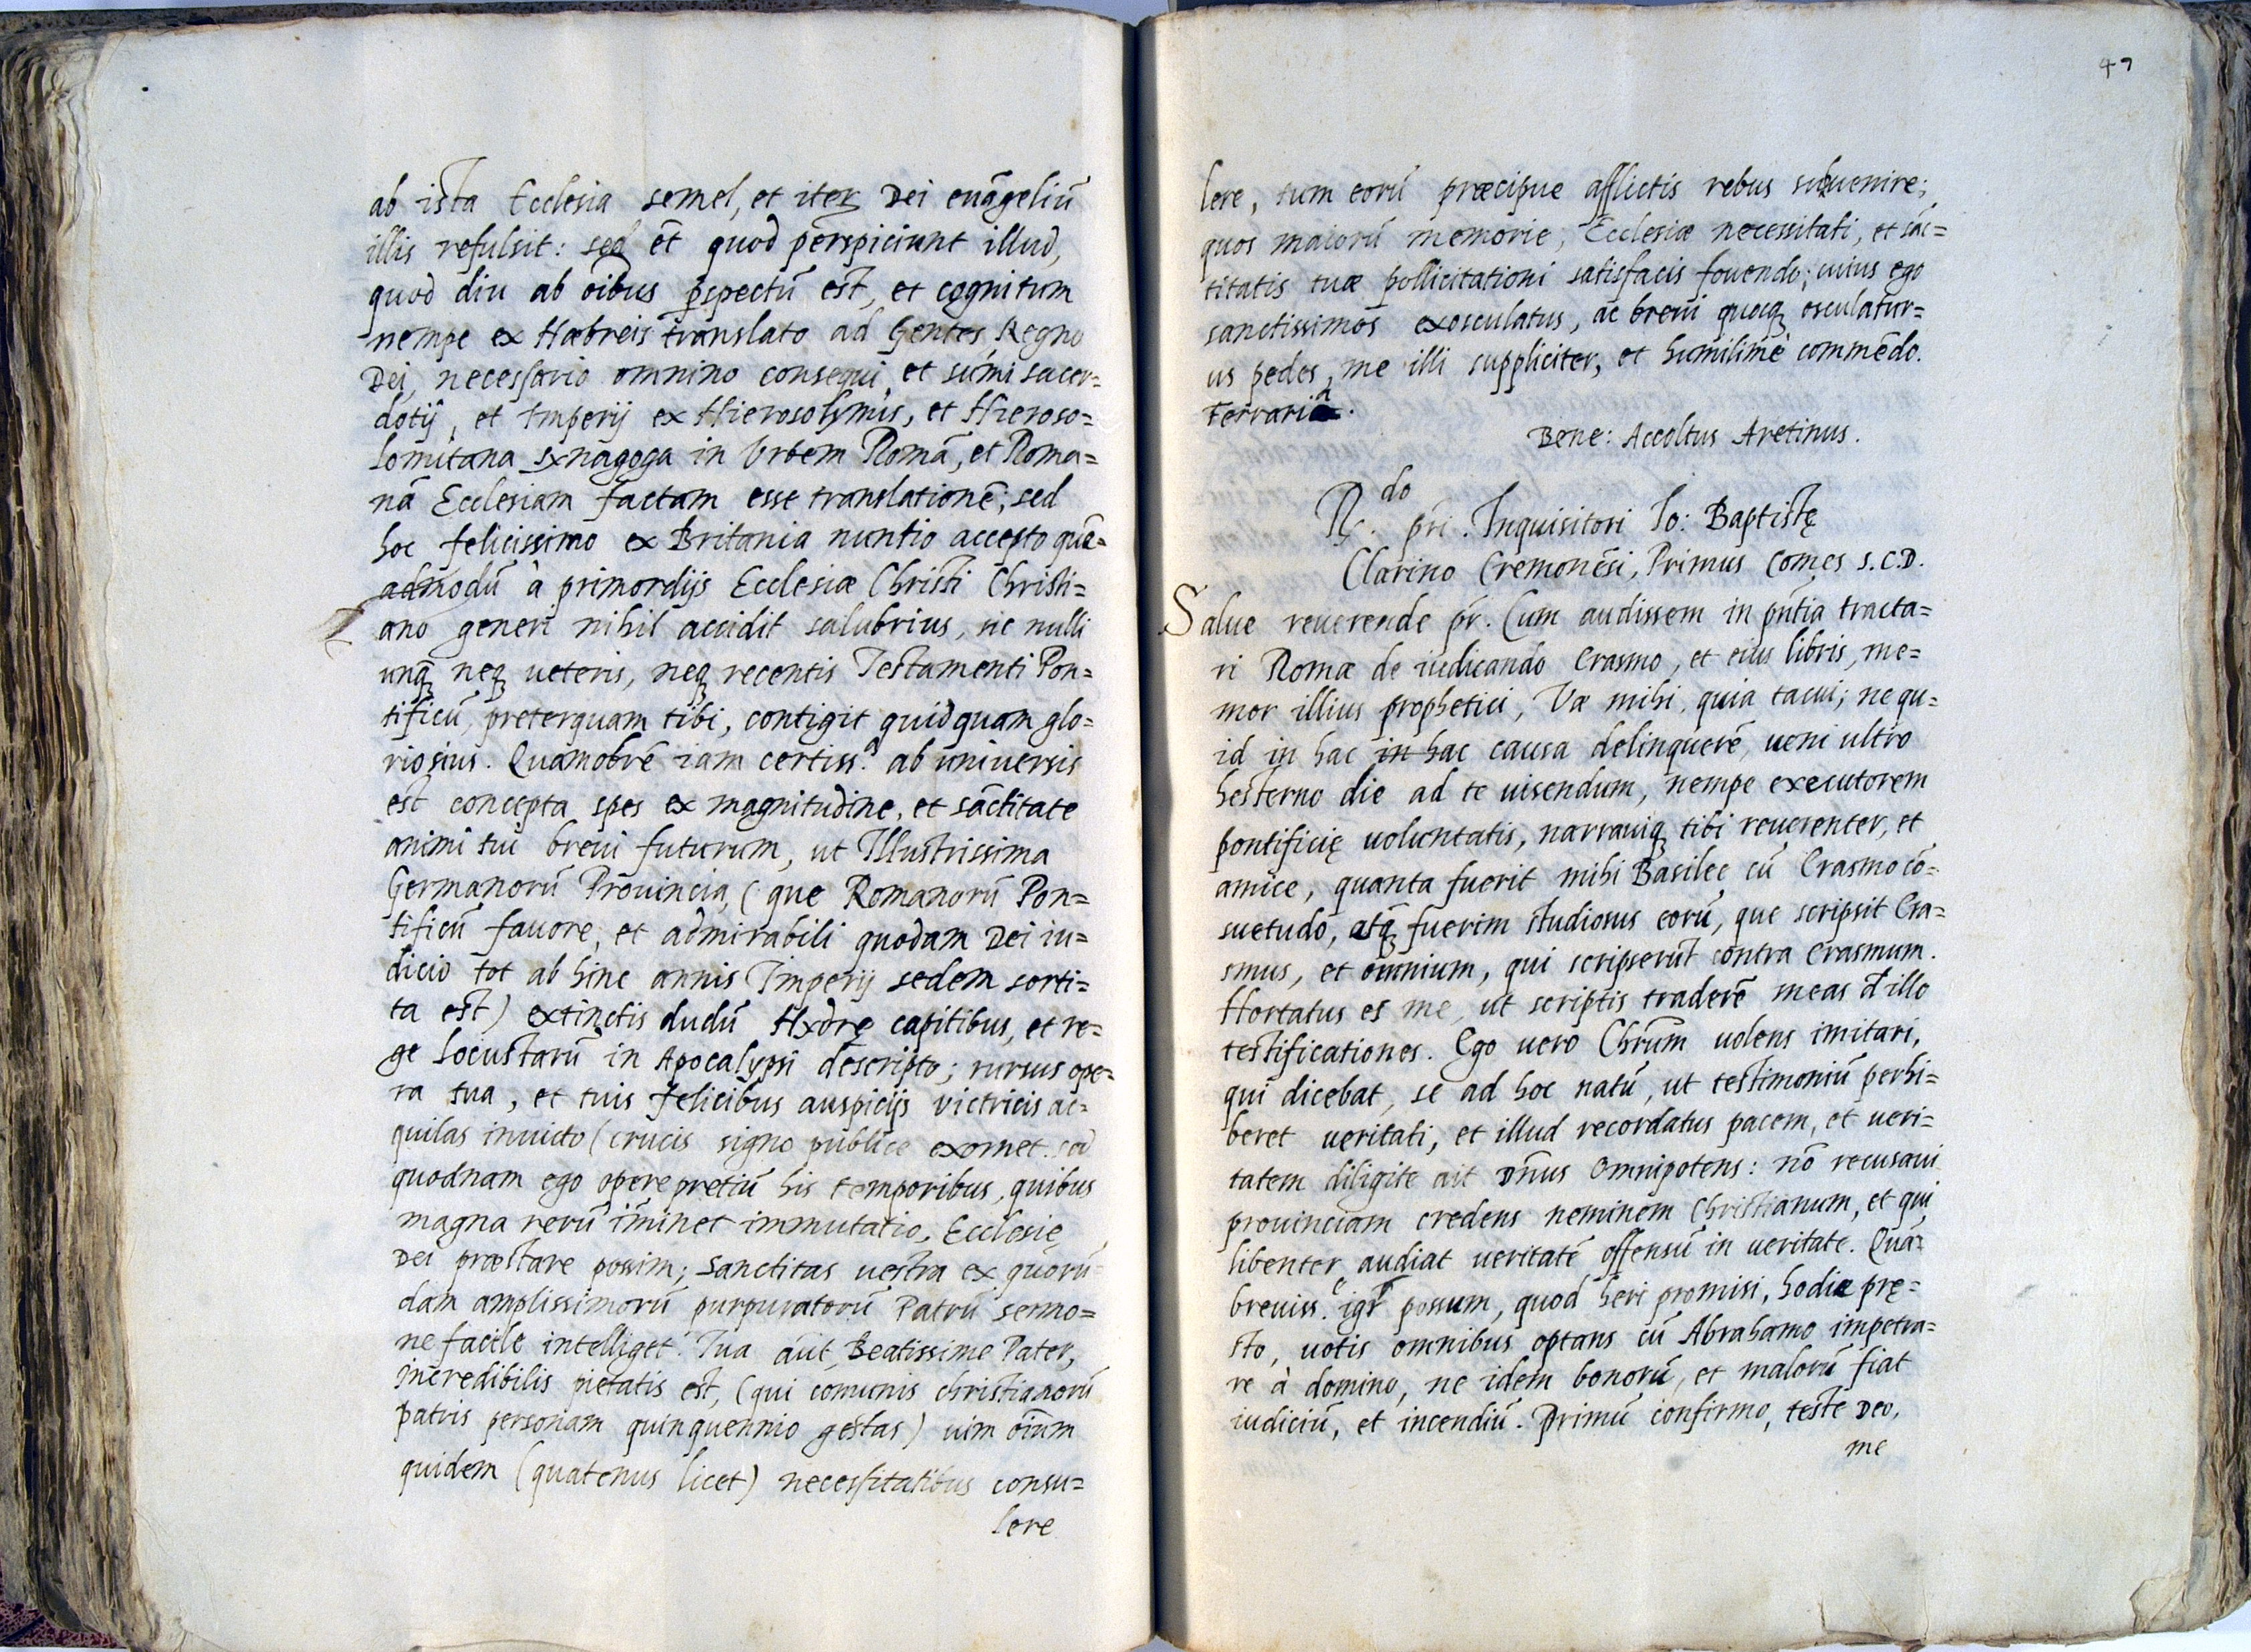 ab ista Ecclesia semel, et iterũ Dei euãgeliũ
illis refulsit: sed ẽt quod perspiciunt illud,
quod diu ab oĩbus p̱spectũ est, et cognitum
nempe ex Hæbreis translato ad Gentes Regno
Dei, necessario omnino consequi, et sũmi sacer=
dotij, et Imperij ex Hierosolymis, et Hieroso=
lomitana synagoga in Vrbem Romã, et Roma=
nã Ecclesiam factam esse translationẽ; sed
hoc felicissimo ex Britania nuntio accepto quẽ=
admodũ à primordijs Ecclesiæ Christi Christi=
ano generi nihil accidit salubrius, sic nulli
unq̃ neq; ueteris, neq; recentis Testamenti Pon=
tificũ, preterquam tibi, contigit quidquam glo=
riosius. Quamobrẽ iam certiss.ᵃ ab uniuersis
est concepta spes ex magnitudine, et sãctitate
animi tui breui futurum, ut Illustrissima
Germanorũ Prouincia, (que Romanorũ Pon=
tificũ fauore, et admirabili quodam Dei iu=
dicio tot ab hinc annis Imperij sedem sorti=
ta est) extinctis dudũ Hydrę capitibus, et re=
ge locustarũ in Apocalypsi descripto; rursus ope=
ra tua, et tuis felicibus auspicijs victricis ac=
quilas inuicto (crucis signo publice exornet. sed
quodnam ego opereprętiũ his temporibus, quibus
magna rerũ im̃inet immutatio, Ecclesię
Dei præstare possim; Sanctitas uestra ex quorũ=
dam amplissimorũ purpuratorũ Patrũ sermo=
ne facile intelliget. Tua aũt Beatissime Pater,
incredibilis pietatis est, (qui comunis christianorũ
patris personam quinquennio gestas) uim oĩum
quidem (quatenus licet) necessitatibus consu=
lere
47
lere, tum eorũ præcipue afflictis rebus subuenire;
quos maiorũ memorie, Ecclesiæ necessitati, et sãc=
titatis tuæ pollicitationi satisfacis fouendo; cuius ego
sanctissimos exosculatus, ac breui quoq; osculatur=
us pedes, me illi suppliciter, et humilimè commẽdo.
Ferraria.
Bene: Accoltus Aretinus.
R.do pri. Inquisitori Io: Baptistę
Clarino Cremonẽsi, Primus Comes S.C.D.
Salue reuerende pr̃. Cum audissem in pñtia tracta=
ri Romæ de iudicando Erasmo, et eius libris, me=
mor illius prophetici, Væ mihi, quia tacui; ne qu=
id in hac in hac causa delinquerẽ, ueni ultro
hesterno die ad te uisendum, nempe executorem
pontificię uoluntatis, narrauiq; tibi reuerenter, et
amice, quanta fuerit mihi Basilee cũ Erasmo cõ=
suetudo, atq; fuerim studiosus eorũ, que scripsit Era=
smus, et omnium, qui scripserũt contra Erasmum.
Hortatus es me, ut scriptis traderẽ meas d' illo
testificationes. Ego uero Chr̃um uolens imitari,
qui dicebat, se ad hoc natũ, ut testimoniũ perhi=
beret ueritati, et illud recordatus pacem, et ueri=
tatem diligite ait Dñus Omnipotens: nõ recusaui
prouinciam credens neminem Christianum, et qui
libenter audiat ueritatẽ offensũ in ueritate. Quã=
breuiss.ᵉ igr̃ possum, quod heri promisi, hodie prę=
sto, uotis omnibus optans cũ Abrahamo impetra=
re à domino, ne idem bonorũ, et malorũ fiat
iudiciũ, et incendiũ. Primũ confirmo, teste Deo,
me